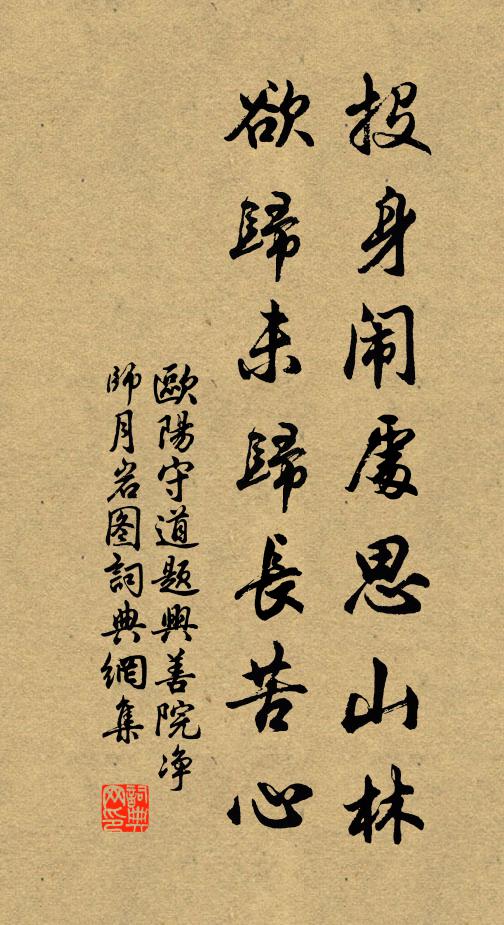 投身闹處思山林
欲歸未歸長苦心
歐陽守道題興善院净
師月岩图詞典網集
詞典網印